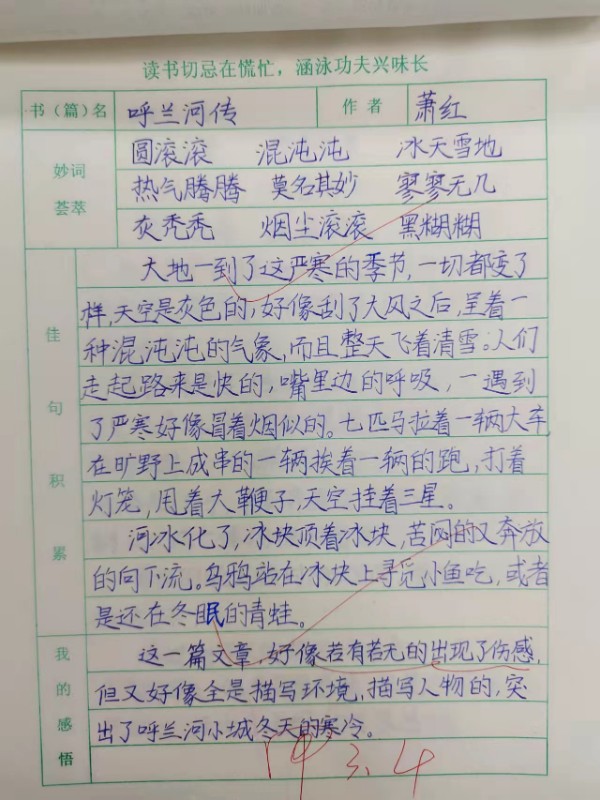 读书切忌在慌忙，涵泳功夫兴味长
书（篇）名 呼兰河传 作者 萧红
妙词荟萃 圆滚滚 混沌沌 冰天雪地
热气腾腾 莫名其妙 寥寥无几
灰秃秃 烟尘滚滚 黑糊糊
佳句积累 大地一到了这严寒的季节,一切都变了
样,天空是灰色的,好像刮了大风之后,呈着一
种混沌沌的气象,而且整天飞着清雪。人们
走起路来是快的,嘴里边的呼吸,一遇到
了严寒好像冒着烟似的。七匹马拉着一辆大车
在旷野上成串的一辆挨着一辆的跑,打着
灯笼,甩着大鞭子,天空挂着三星。
河冰化了,冰块顶着冰块,苦闷的又奔放
的向下流。乌鸦站在冰块上寻觅小鱼吃,或者
是还在冬眠的青蛙。
我的感悟 这一篇文章,好像若有若无的出现了伤感,
但又好像全是描写环境,描写人物的,突
出了呼兰河小城冬天的寒冷。
19 3.4